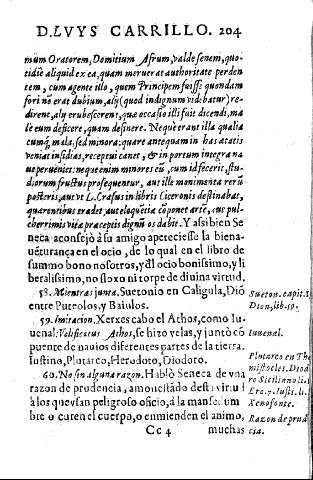 D. LVYS CARRILLO. 204
mum Oratorem, Domitium Afrum, valde senem, quo-
tidie aliquid ex ea, quam meruerat authoritate perden
tem, cum agente illo, quem Principem fuisse quondam
fori nõ erat dubium, alij (quod indignum videbatur) re-
dirent, alij erubescerent, quæ occasio illi fuit dicendi, ma
le eum deficere, quam desinere. Neque erant illa qualia
cumq; mala, sed minora; quare antequam in has ætatis
veniat insidias, receptui canet, & in portum integra na
ue perueniet: neque enim minores eũ, cum id fecerit, stu-
diorum fructus prosequentur, aut ille monimenta rerũ
posteris, aut vt L. Crasus in libris Ciceronis destinabat,
quærentibus tradet, aut eloquẽtia cõponet artẽ, aut pul-
cherrimis vitæ præceptis dignũ os dabit. Y assi bien Se
neca aconsejò à su amigo apeteciesse la biena-
uẽturança en el ocio, de lo qual en el libro de
summo bono nosotros, y ðl ocio bonissimo, y li
beralissimo, no floxo ni torpe de diuina virtud.
58. Mientras junta. Suetonio en Caligula, Diõ
entre Puteolos, y Baiulos.
Sueton. capit. 1
Dion, lib. 59.
59. Imitacion. Xerxes cabo el Athos, como Iu-
uenal: Velificatus Athos, se hizo velas, y juntò cõ
puente de nauios diferentes partes de la tierra.
Iustino, Plutarco, Herodoto, Diodoro.
Iuuenal.
Plutarco en The
mistocles. Diod
ro Siciliano li.
Era. 7. Iusti. li.
Xenofonte.
60. No sin alguna razon. Hablò Seneca de vna
razon de prudencia, amonestãdo desta virtud
à los que vsan peligroso oficio, à la mansedum
bre o curen el cuerpo, o enmienden el animo,
Razon de prudẽ
cia.
Cc 4 muchas